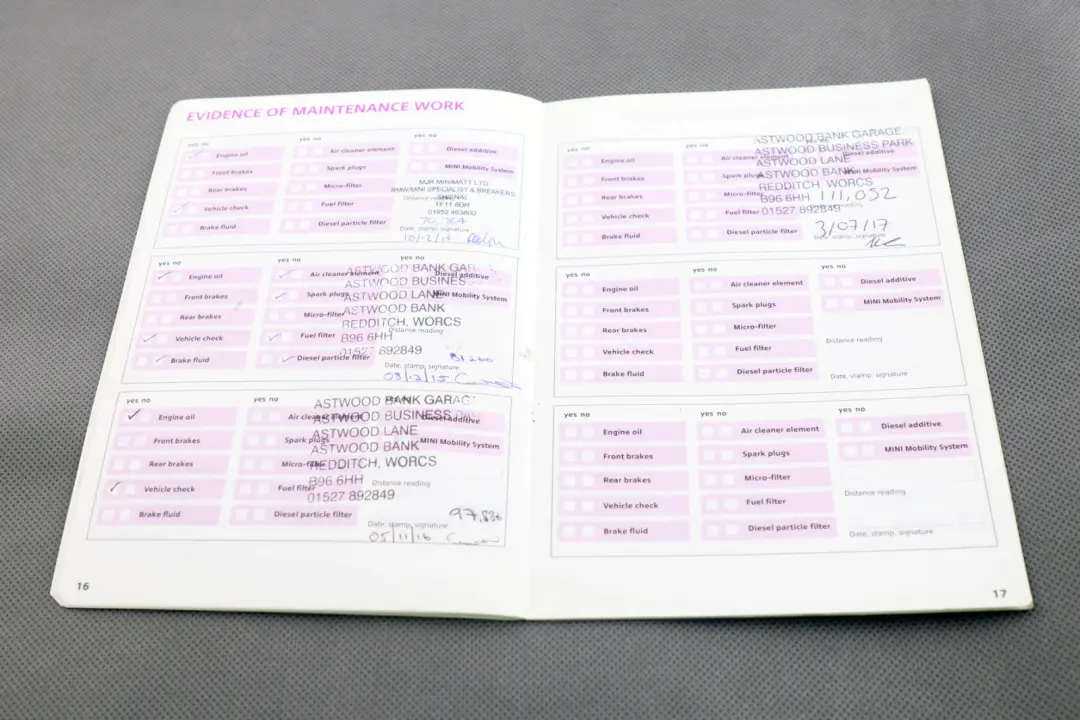 EVIDENCE OF MAINTENANCE WORK
yes no
yes no
yes no
Engine oil
Air cleaner element
Diesel additive
Front brakes
Spark plugs
MINI Mobility System
Rear brakes
Micro-filter
Vehicle check
Fuel filter
Brake fluid
Diesel particle filter
MJR MINIMATT LTD
BMW/MINI SPECIALIST & BREAKERS
SHIFNAL
TF11 8DR
01952 463800
Distance reading
70,764
Date, stamp, signature
10/12/14
yes no
yes no
yes no
Engine oil
Air cleaner element
Diesel additive
Front brakes
Spark plugs
MINI Mobility System
Rear brakes
Micro-filter
Vehicle check
Fuel filter
Brake fluid
Diesel particle filter
ASTWOOD BANK GARAG
ASTWOOD BUSINESS
ASTWOOD LANE
ASTWOOD BANK
REDDITCH, WORCS
B96 6HH
01527 892849
Distance reading
81200
Date, stamp, signature
03/12/15
yes no
yes no
Engine oil
Air cleaner element
Diesel additive
Front brakes
Spark plugs
MINI Mobility System
Rear brakes
Micro-filter
Vehicle check
Fuel filter
Brake fluid
Diesel particle filter
ASTWOOD BANK GARAG
ASTWOOD BUSINESS
ASTWOOD LANE
ASTWOOD BANK
REDDITCH, WORCS
B96 6HH
01527 892849
Distance reading
97,886
Date, stamp, signature
05/11/16
16
yes no
yes no
Engine oil
Air cleaner element
Diesel additive
Front brakes
Spark plugs
MINI Mobility System
Rear brakes
Micro-filter
Vehicle check
Fuel filter
Brake fluid
Diesel particle filter
ASTWOOD BANK GARAGE
ASTWOOD BUSINESS PARK
ASTWOOD LANE
ASTWOOD BANK
REDDITCH, WORCS
B96 6HH
01527 892849
111,052
Distance reading
3/07/17
Date, stamp, signature
yes no
yes no
yes no
Engine oil
Air cleaner element
Diesel additive
Front brakes
Spark plugs
MINI Mobility System
Rear brakes
Micro-filter
Distance reading
Vehicle check
Fuel filter
Brake fluid
Diesel particle filter
Date, stamp, signature
yes no
yes no
yes no
Engine oil
Air cleaner element
Diesel additive
Front brakes
Spark plugs
MINI Mobility System
Rear brakes
Micro-filter
Distance reading
Vehicle check
Fuel filter
Brake fluid
Diesel particle filter
Date, stamp, signature
17